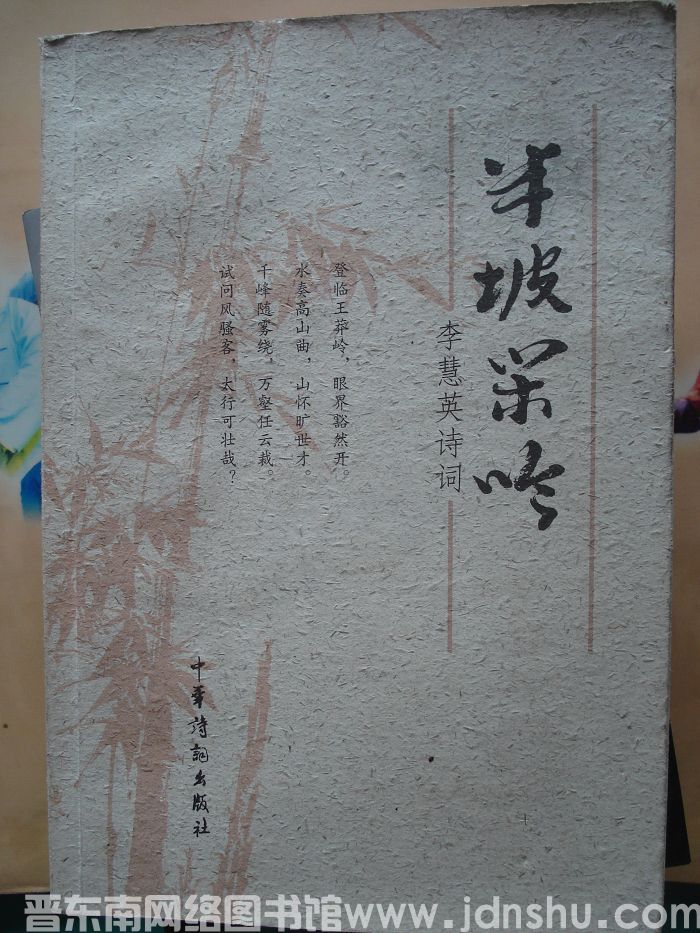 半坡闲吟
李慧英诗词
登临王莽岭，眼界豁然开。
水奏高山曲，山怀旷世才。
千峰随雾绕，万壑任云裁。
试问风骚客，太行可壮哉？
中華詩詞出版社
晋东南网络图书馆www.jdnshu.com